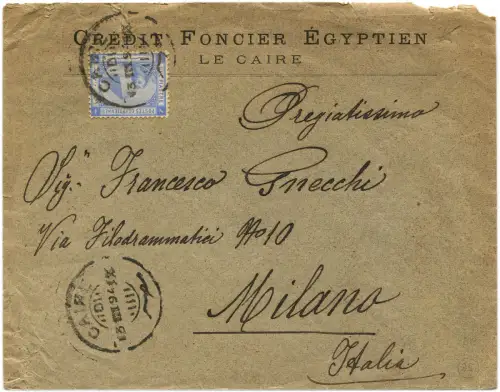 CREDIT FONCIER ÉGYPTIEN
LE CAIRE
Pregiatissimo
Sig.r Francesco Gnecchi
Via Filodrammatici No 10
Milano
Italia
CAIRE